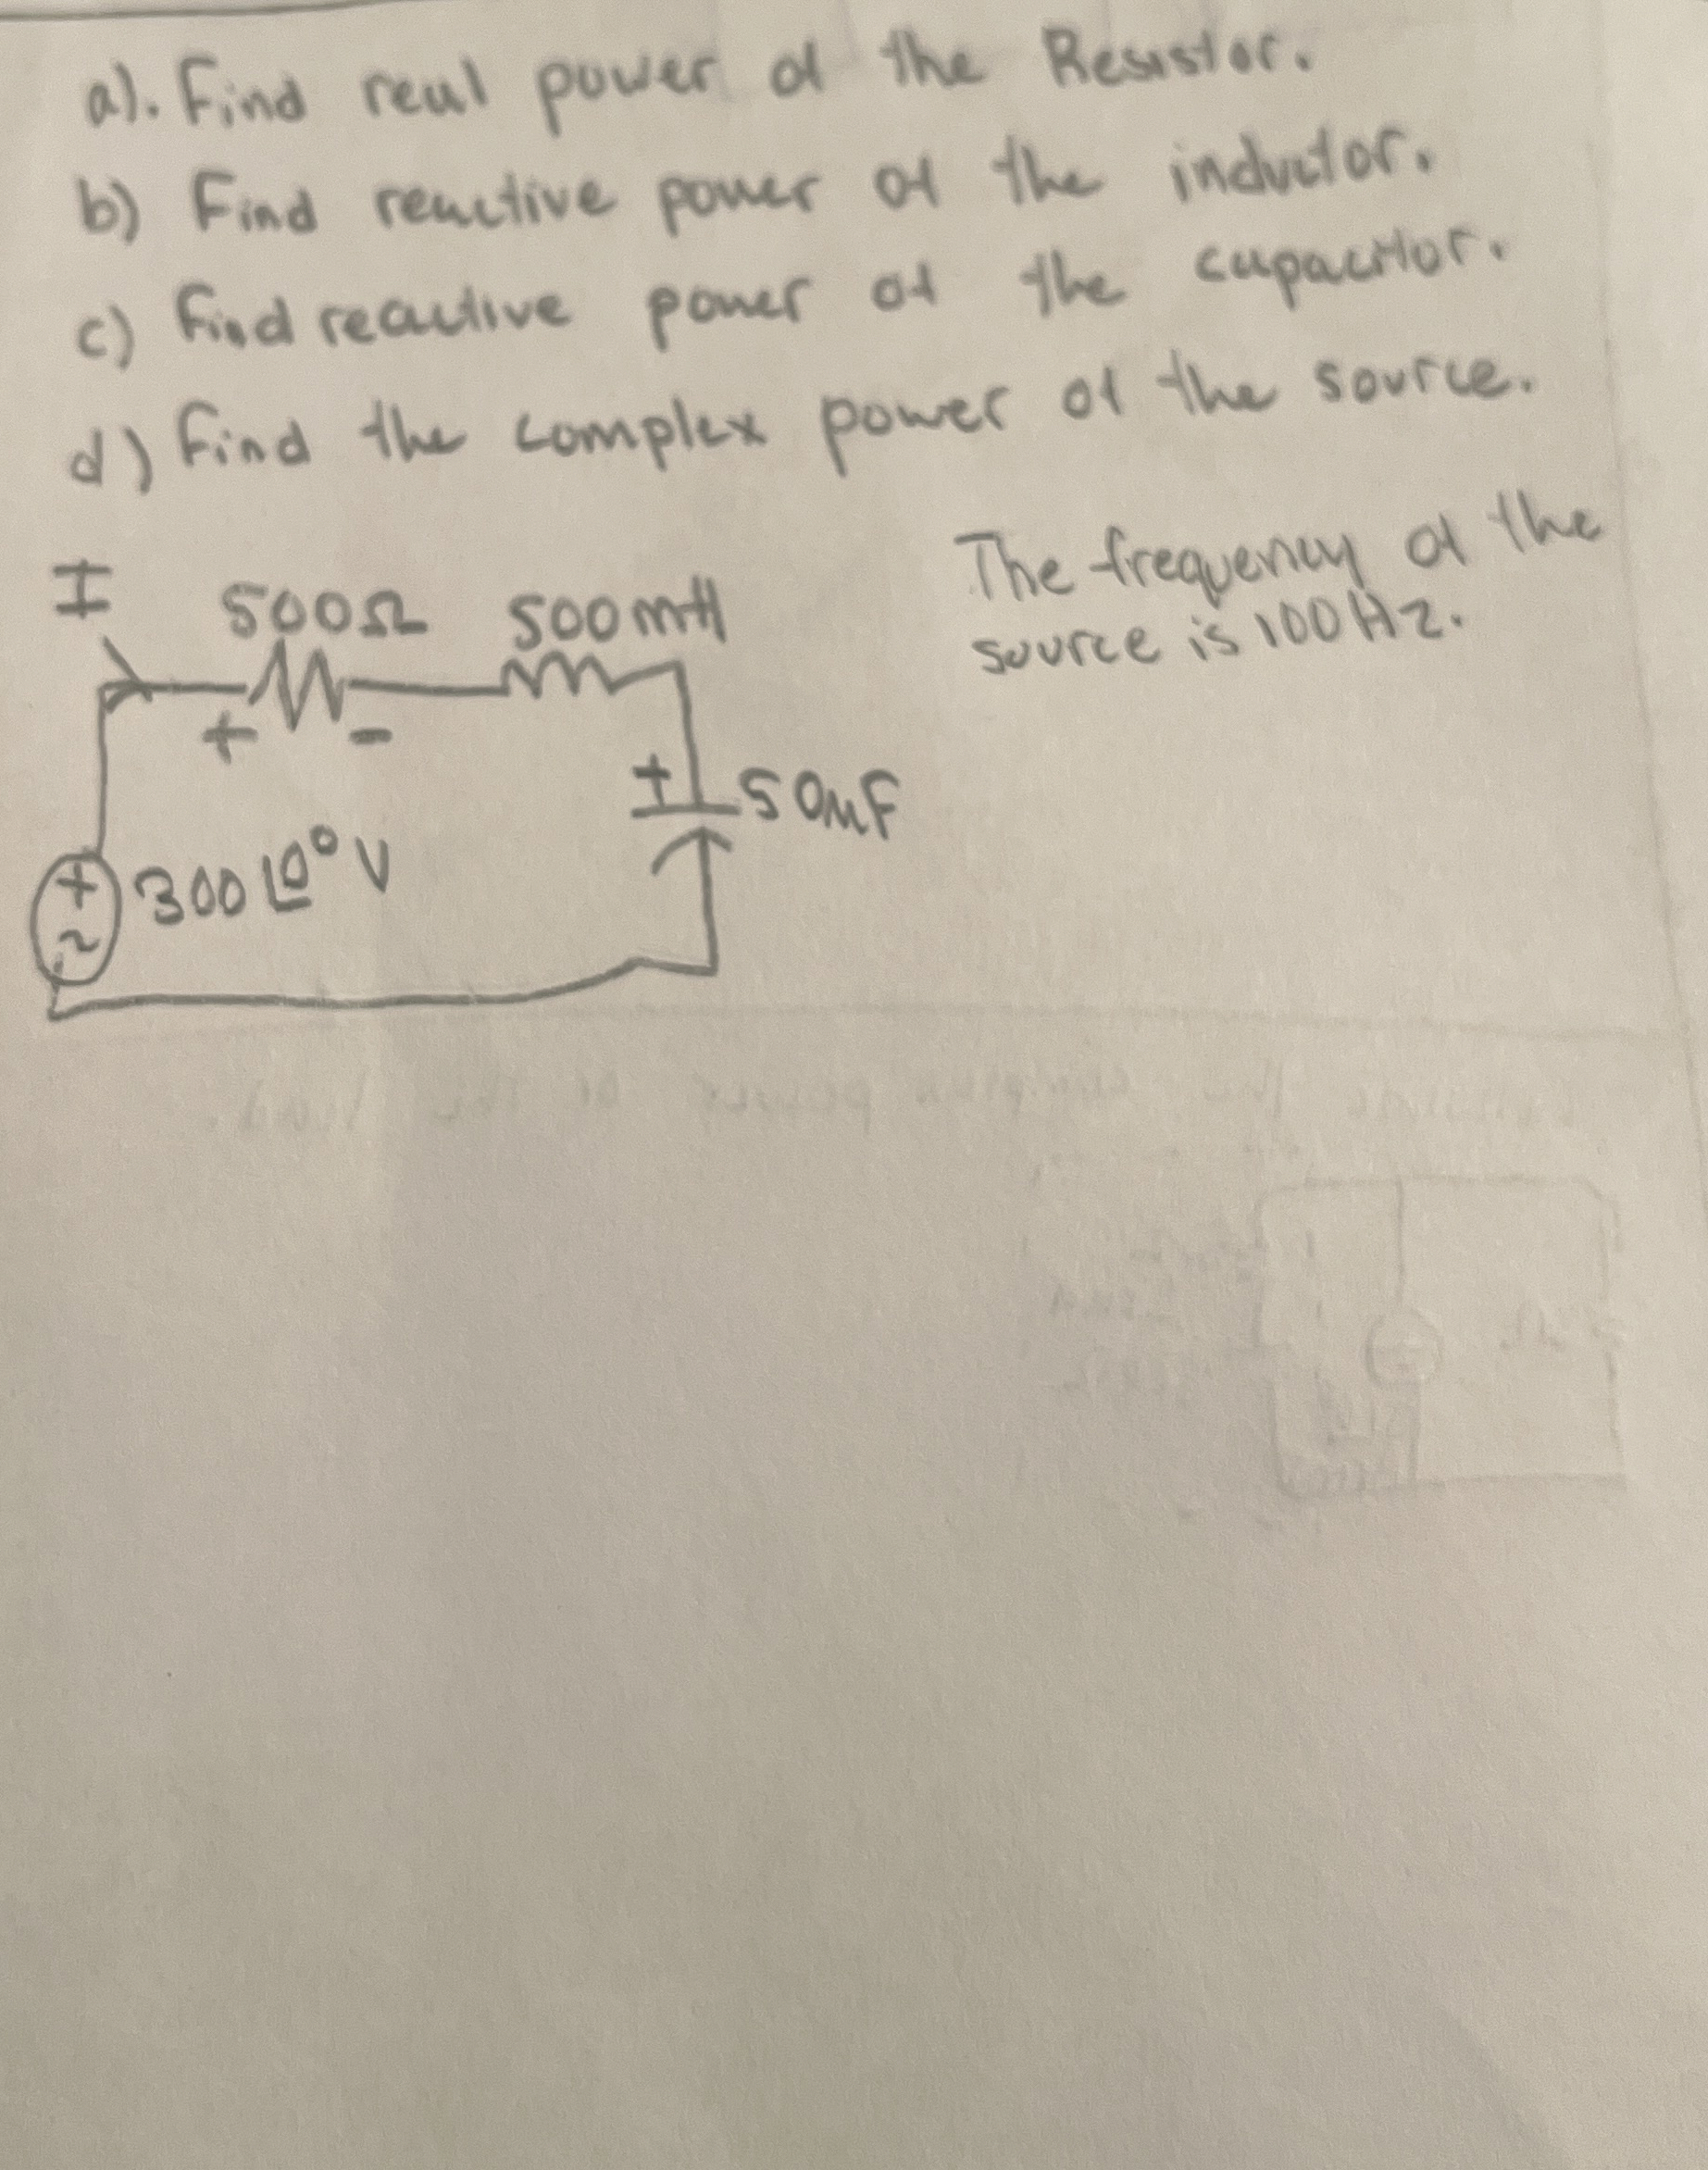 a). Find real power of the Resistor.
b) Find reactive power of the inductor.
c) Find reactive power of the capacitor.
d) Find the complex power of the source.
The frequency of the
source is 100 Hz.
I
500Ω 500mH
+ -
+ 50μF
+ 300∠0° V
~